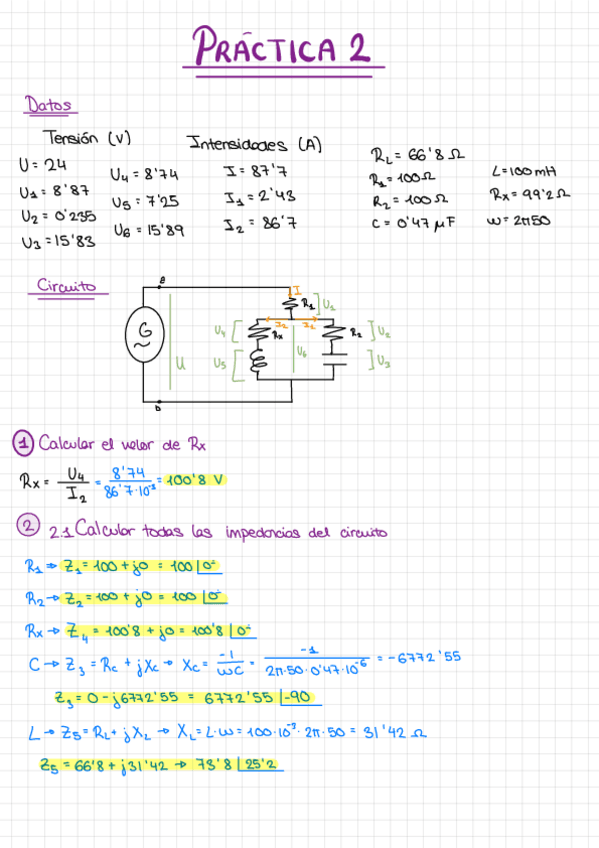 PRÁCTICA 2
Datos
Tensión (V)
U = 24
U1 = 8'87
U2 = 0'235
U3 = 15'83
U4 = 8'74
U5 = 7'25
U6 = 15'89
Intensidades (A)
I = 87'7
I1 = 2'43
I2 = 86'7
RL = 66'8 Ω
R1 = 100Ω
R2 = 100Ω
C = 0'47 μF
L = 100 mH
Rx = 99'2 Ω
w = 2π50
Circuito
a
I
R1
U1
G
U
U4
I2
I1
Rx
R2
U2
U5
U6
U3
b
1 Calcular el valor de Rx
Rx = U4 / I2 = 8'74 / 86'7·10⁻³ = 100'8 V
2 2.1 Calcular todas las impedancias del circuito
R1 → Z1 = 100 + j0 = 100 |0°
R2 → Z2 = 100 + j0 = 100 |0°
Rx → Z4 = 100'8 + j0 = 100'8 |0°
C → Z3 = Rc + jXc → Xc = -1 / wC = -1 / 2π·50·0'47·10⁻⁶ = -6772'55
Z3 = 0 - j6772'55 = 6772'55 |-90
L → Z5 = RL + jXL → XL = L·w = 100·10⁻³·2π·50 = 31'42 Ω
Z5 = 66'8 + j31'42 → 73'8 |25'2